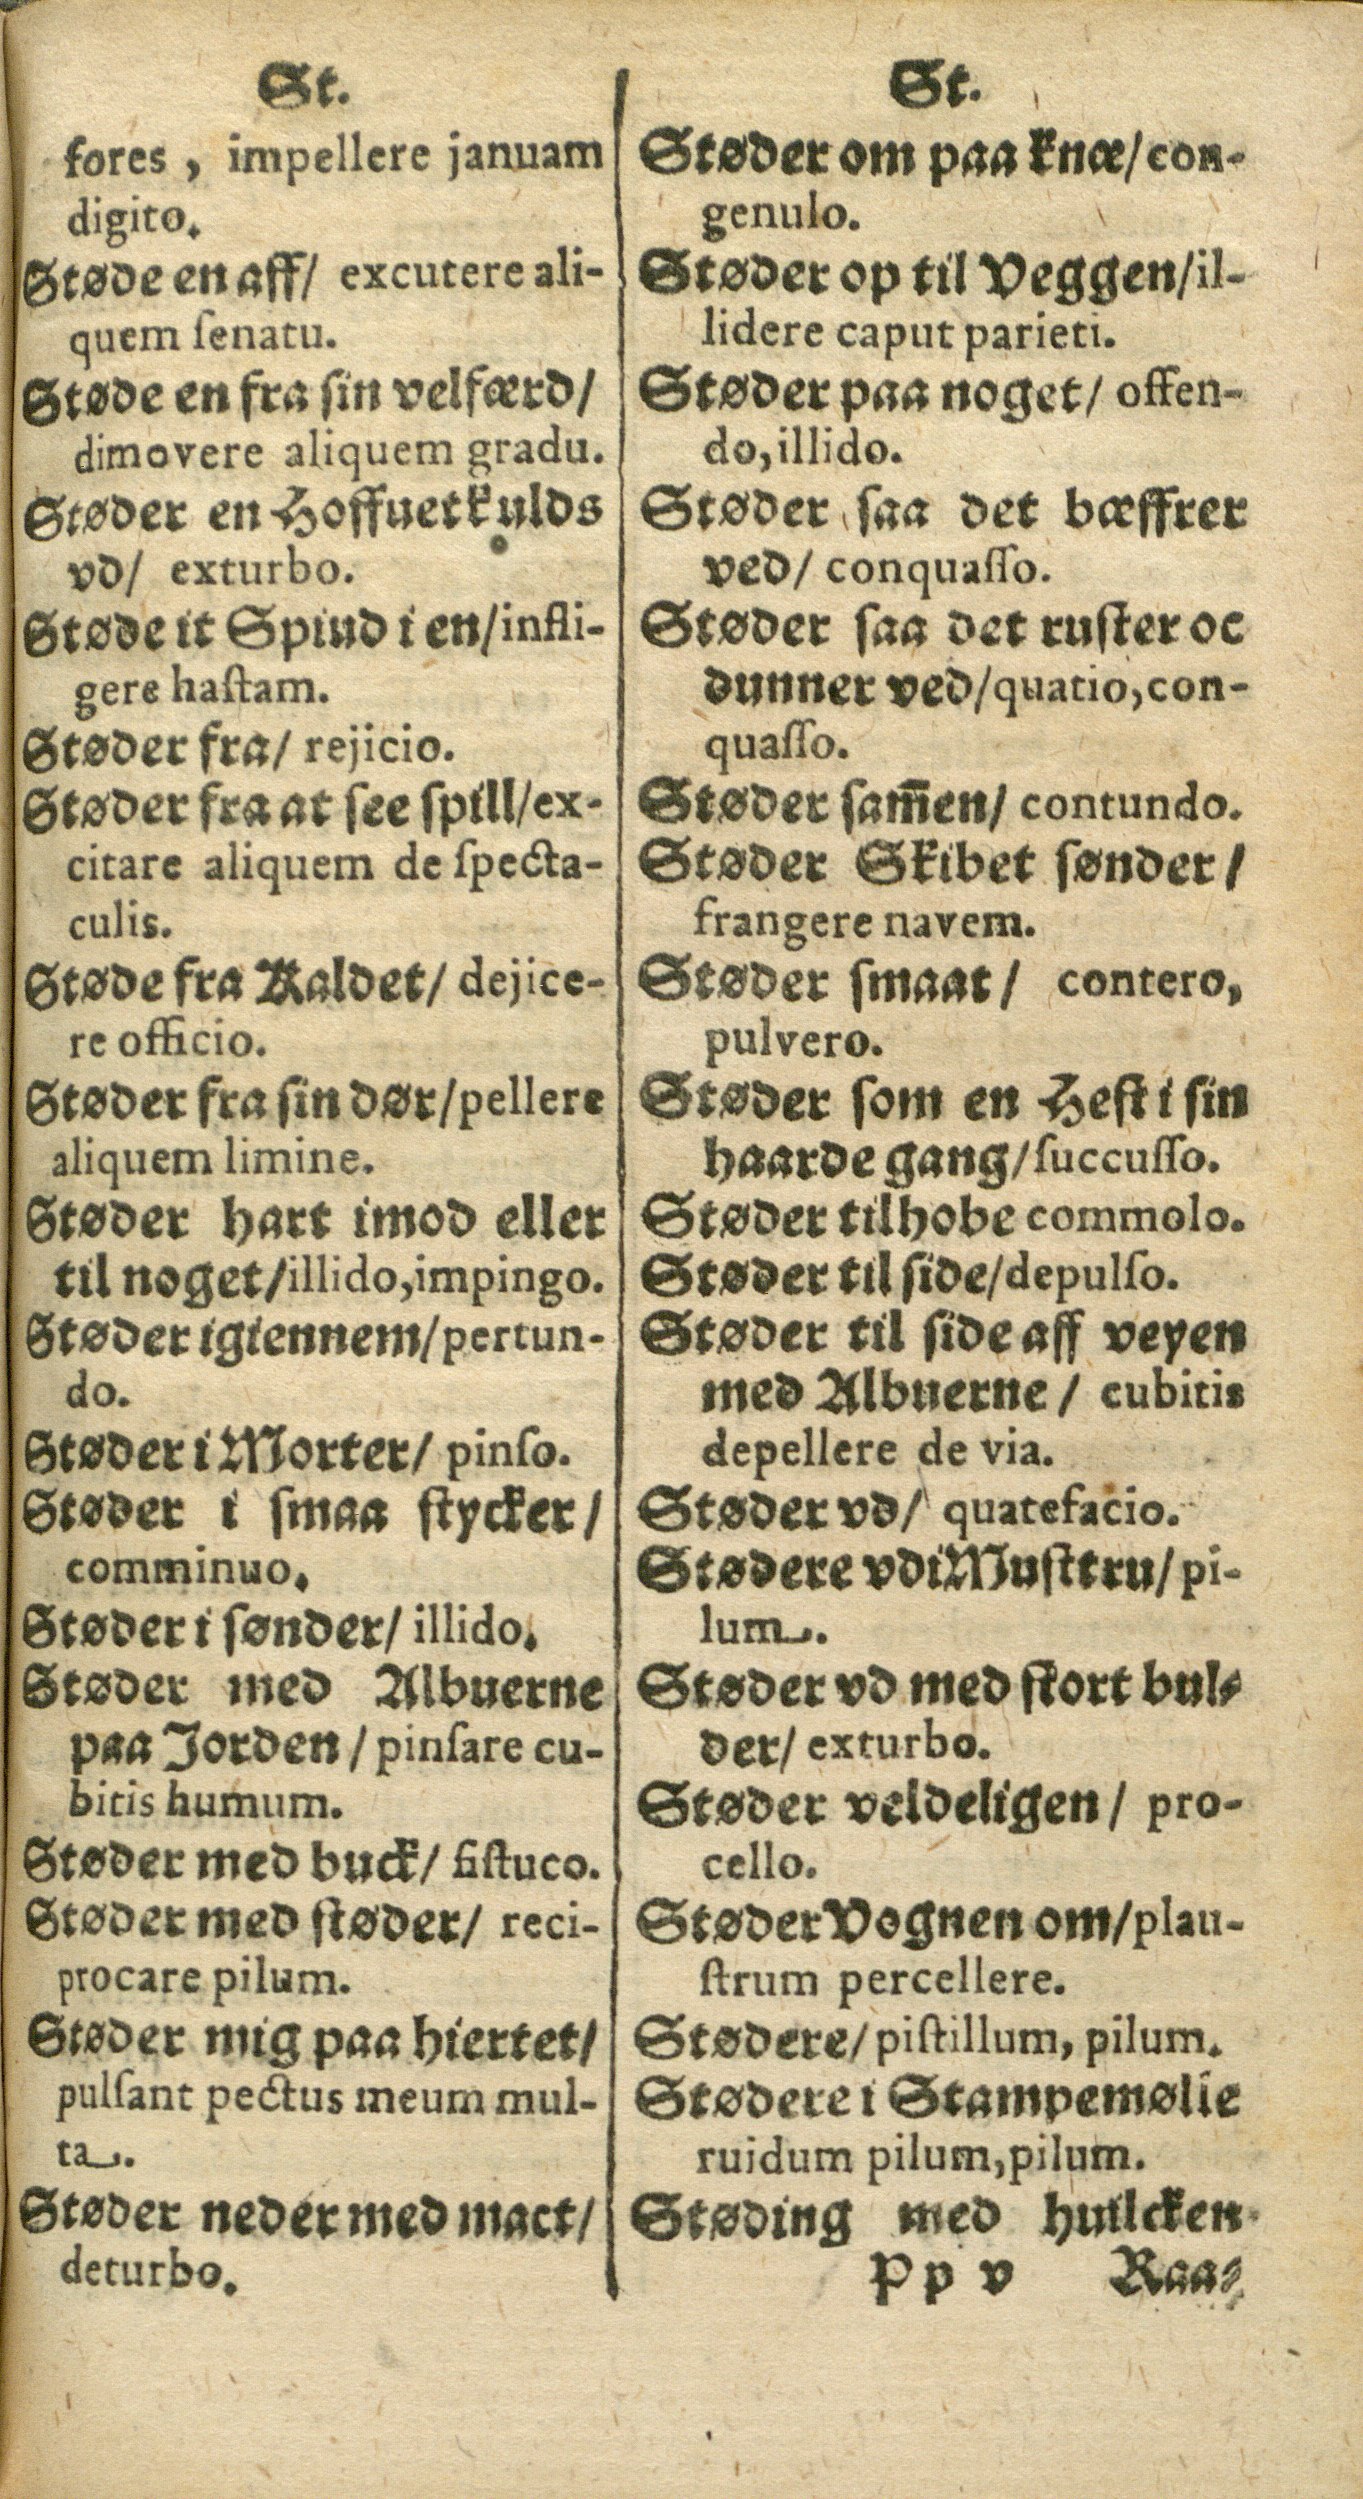 St.
fores, impellere januam
digito.
Støde en aff/ excutere ali-
quem ſenatu.
Støde en fra ſin velfærd/
dimovere aliquem gradu.
Støder en Hoffuetkulds
vd/ exturbo.
Støde it Spiud i en/infli-
gere haſtam.
Støder fra/ rejicio.
Støder fra at ſee ſpill/ex-
citare aliquem de ſpecta-
culis.
Støde fra Kaldet/ dejice-
re officio.
Støder fra ſin dør/pellere
aliquem limine.
Støder hart imod eller
til noget/illido,impingo.
Støder igiennem/pertun-
do.
Støder i Morter/ pinſo.
Støder i ſmaa ſtycker/
comminuo.
Støder i ſønder/ illido.
Støder med Albuerne
paa Jorden/ pinſare cu-
bitis humum.
Støder med buck/ fiſtuco.
Støder med ſtøder/ reci-
procare pilum.
Støder mig paa hiertet/
pulſant pectus meum mul-
ta.
Støder neder med mact/
deturbo.
St.
Støder om paa knæ/con-
genulo.
Støder op til Veggen/il-
lidere caput parieti.
Støder paa noget/ offen-
do,illido.
Støder ſaa det bæffrer
ved/ conquaſſo.
Støder ſaa det ruſter oc
dunner ved/quatio,con-
quaſſo.
Støder ſam̄en/ contundo.
Støder Skibet ſønder/
frangere navem.
Støder ſmaat/ contero,
pulvero.
Støder ſom en Heſt i ſin
haarde gang/ſuccuſſo.
Støder tilhobe commolo.
Støder til ſide/depulſo.
Støder til ſide aff veyen
med Albuerne/ cubitis
depellere de via.
Støder vd/ quatefacio.
Stødere vdi Muſttru/ pi-
lum.
Støder vd med ſtort bul-
der/ exturbo.
Støder veldeligen/ pro-
cello.
Støder Vognen om/plau-
ſtrum percellere.
Stødere/ piſtillum, pilum.
Stødere i Stampemølle
ruidum pilum,pilum.
Støding med huilcken
Pp v Raa-